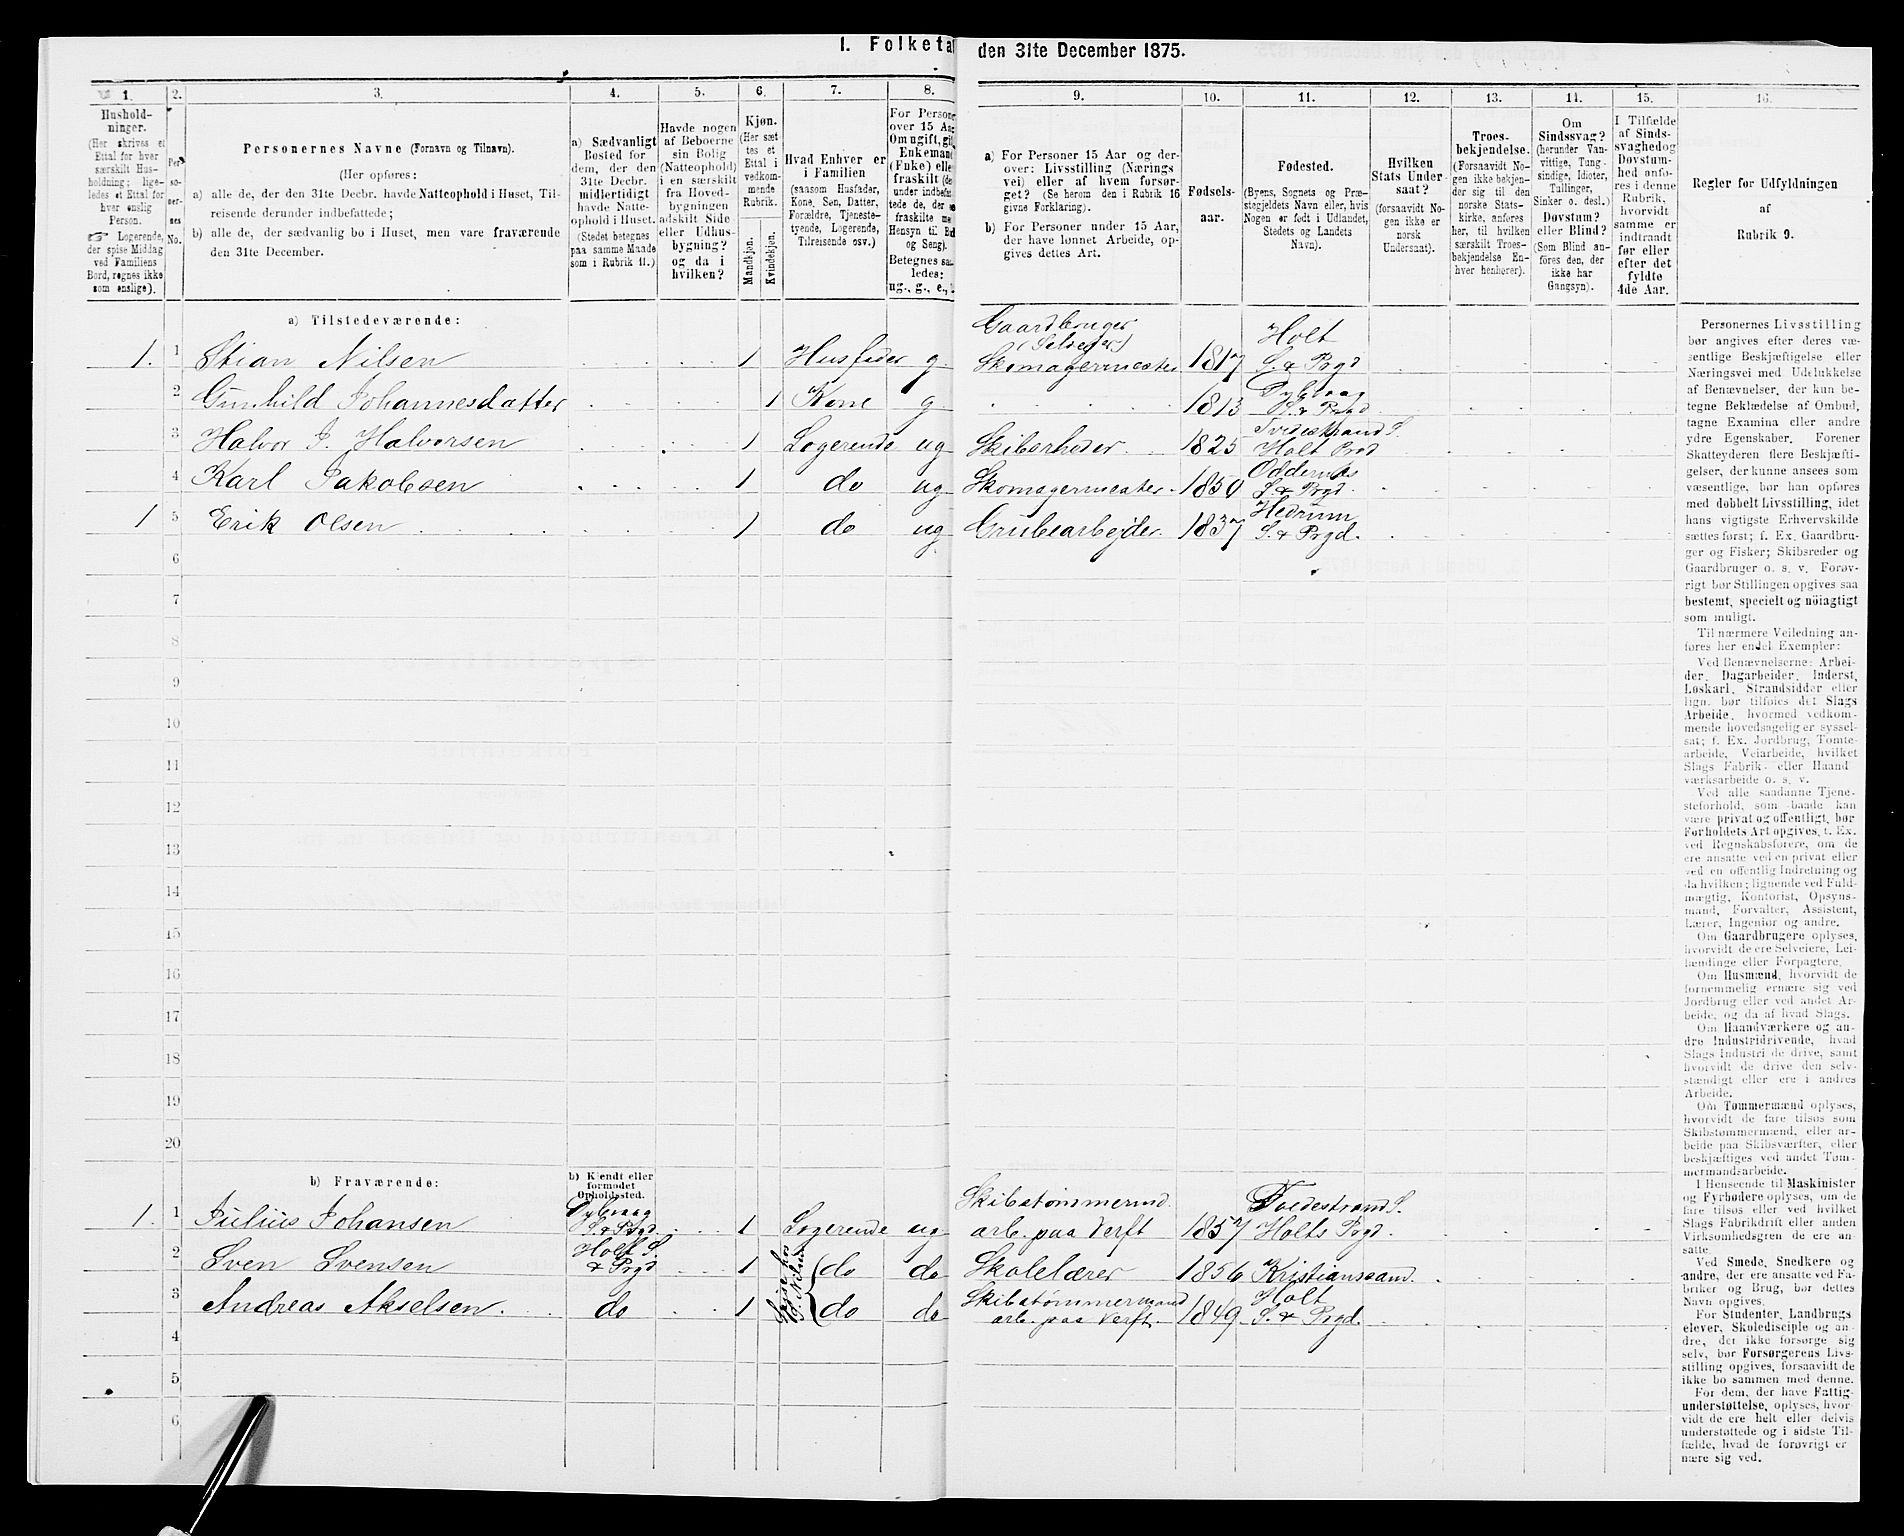 I. Folketal den 31te December 1875.
1. 2. 3. 4. 5. 6. 7. 8. 9. 10. 11. 12. 13. 14. 15. 16.
Hushold-
ninger.
(Her skrives et
Ettal for hver
særskilt Hus-
holdning; lige-
ledes et Ettal for
hver enslig
Person.
☞ Logerende,
der spise Middag
ved Familiens
Bord, regnes ikke
som enslige).
Per-
so-
ner-
nes
No.
Personernes Navne (Fornavn og Tilnavn).
(Her opføres:
a) alle de, der den 31te Decbr. havde Natteophold i Huset, Til-
reisende derunder indbefattede;
b) alle de, der sædvanlig bo i Huset, men vare fraværende
den 31te December.
a) Sædvanligt
Bosted for
dem, der den
31te Decbr.
midlertidigt
havde Natte-
ophold i Huset.
(Stedet betegnes
paa samme Maade
som i Rubrik 11.)
Havde nogen
af Beboerne
sin Bolig
(Natteophold)
i en særskilt
fra Hoved-
bygningen
adskilt Side-
eller Udhus-
bygning?
og da i
hvilken?
Kjøn.
(Her sæt-
tes et
Ettal i
vedkom-
mende
Rubrik.
Mandkjøn.
Kvindekjøn.
Hvad Enhver er
i Familien
(saasom Husfader,
Kone, Søn, Datter,
Forældre, Tjeneste-
tyende, Logerende,
Tilreisende osv.)
For Persone
over 15 Aar
Om ugift, gift
Enkemand
(Enke) eller
fraskilt (der
under indbefat-
tede de, der ere
fraskilte med
Hensyn til Bord
og Seng).
Betegnes saa-
ledes:
ug., g., e.,
a) For Personer 15 Aar og der-
over: Livsstilling (Nærings
vei) eller af hvem forsør-
get? (Se herom den i Rubrik 16
givne Forklaring).
b) For Personer under 15 Aar,
der have lønnet Arbeide, op-
gives dettes Art.
Fødsels-
aar.
Fødested.
(Byens, Sognets og Præ-
stegjeldets Navn eller, hvis
Nogen er født i Udlandet,
Stedets og Landets
Navn).
Hvilken
Stats Under-
saat?
(forsaavidt No-
gen ikke er
norsk
Undersaat).
Troes-
bekjendelse.
(Forsaavidt No-
gen ikke bekjen-
der sig til den
norske Stats-
kirke, anføres
her, til hvilken
særskilt Troes-
bekjendelse En-
hver henhører).
Om
Sindssvag?
(herunder Van-
vittige, Tung-
sindige, Idioter,
Tullinger,
Sinker o. desl.)
Døvstum?
eller Blind?
(Som Blind an-
føres den, der
ikke har
Gangsyn).
I Tilfælde
af Sinds-
svaghed og
Døvstum-
hed anfø-
res i denne
Rubrik,
hvorvidt
samme er
indtraadt
før eller
efter det
fyldte
4de Aar.
Regler for Udfyldningen
af
Rubrik 9.
a) Tilstedeværende:
1. 1 Stian Nilsen 1 Husfader g Gaardbruger (Selveier) Skomagermester 1817 Holt S. & Pgd
2 Gunhild Johannesdatter 1 Kone g 1813 Dybvaag S. & Pgd.
3 Halvor J. Halvorsen 1 Logerende ug Skibsrheder 1825 Tvedestrand S. Holt Pgd
4 Karl Jakobsen 1 do ug Skomagermester 1850 Oddernes S. & Pgd.
1 5 Erik Olsen 1 do ug Grubearbejder 1837 Hedrum S. & Prgd.
6
7
8
9
10
11
12
13
14
15
16
17
18
19
20
b) Fraværende:
b) Kjendt eller
formodet
Opholdssted.
1. 1 Julius Johansen Dybvaag S. & Pgd. 1 Logerende ug Skibstømmermd. arb. paa Verft 1857 Tvedestrand S. Holts Pgd.
2 Sven Svensen Holt S. & Prgd 1 do do Skolelærer 1856 Kristianssand.
3 Andreas Akselsen. do 1 do do Skibstømmermand arb. paa Verft. 1849 Holt S. & Prgd.
4
5
6
Personernes Livsstilling
bør angives efter deres væ-
sentlige Beskjæftigelse eller
Næringsvei med Udelukkelse
af Benævnelser, der kun be-
tegne Beklædelse af Ombud,
tagne Examina eller andre
ydre Egenskaber. Forener
Skatteyderen flere Beskjæfti-
gelser, der kunne ansees som
væsentlige, bør han opføres
med dobbelt Livsstilling, idet
hans vigtigste Erhvervskilde
sættes først; f. Ex. Gaardbru-
ger og Fisker; Skibsreder og
Gaardbruger o. s. v. Forøv-
rigt bør Stillingen opgives saa
bestemt, specielt og nöiagtigt
som muligt.
Til nærmere Veiledning an-
føres her endel Exempler:
Ved Benævnelserne: Arbei-
der, Dagarbeider, Inderst,
Løskarl, Strandsidder eller
lign. bør tilføies det Slags
Arbeide, hvormed vedkom-
mende hovedsagelig er syssel-
sat; f. Ex. Jordbrug, Tomte-
arbeide, Veiarbeide, hvilket
Slags Fabrik- eller Haand
værksarbeide o. s. v.
Ved alle saadanne Tjene-
steforhold, som baade kan
være privat og offentligt, bør
Forholdets Art opgives, t. Ex.
ved Regnskabsførere, om de
ere ansatte ved en privat eller
ved en offentlig Indretning og
da hvilken; lignende ved Fuld-
mægtig, Kontorist, Opsyns-
mand, Forvalter, Assistent,
Lærer, Ingeniør og andre.
Om Gaardbrugere oplyses,
hvorvidt de ere Selveiere, Lei-
lændinge eller Forpagtere.
Om Husmænd, hvorvidt de
fornemmelig ernære sig ved
Jordbrug eller ved andet Ar-
beide, og da af hvad Slags.
Om Haandværkere og an-
dre Industridrivende, hvad
Slags Industri de drive, samt
hvorvidt de drive den selv-
stændigt eller ere i andres
Arbeide.
Om Tømmermænd oplyses,
hvorvidt de fare tilsøs som
Skibstømmermænd, eller ar-
beide paa Skibsværfter, eller
beskjæftiges ved andet Tøm-
mermandsarbeide.
I Henseende til Maskinister
og Fyrbødere oplyses, om de
fare tilsøs eller ved hvilket
Slags Fabrikdrift eller anden
Virksomhedsgren de ere an-
satte.
Ved Smede, Snedkere og
andre, der ere ansatte ved Fa-
briker og Brug, bør dettes
Navn opgives.
For Studenter, Landbrugs
elever, Skoledisciple og an-
dre, der ikke forsørge sig
selv, bør Forsørgerens Livs-
stilling opgives, forsaavidt de
ikke bo sammen med denne.
For dem, der have Fattig-
understøttelse, oplyses, hvor-
vidt de ere helt eller delvis
understøttede og i sidste Til-
fælde, hvad de forøvrigt er
nære sig ved.